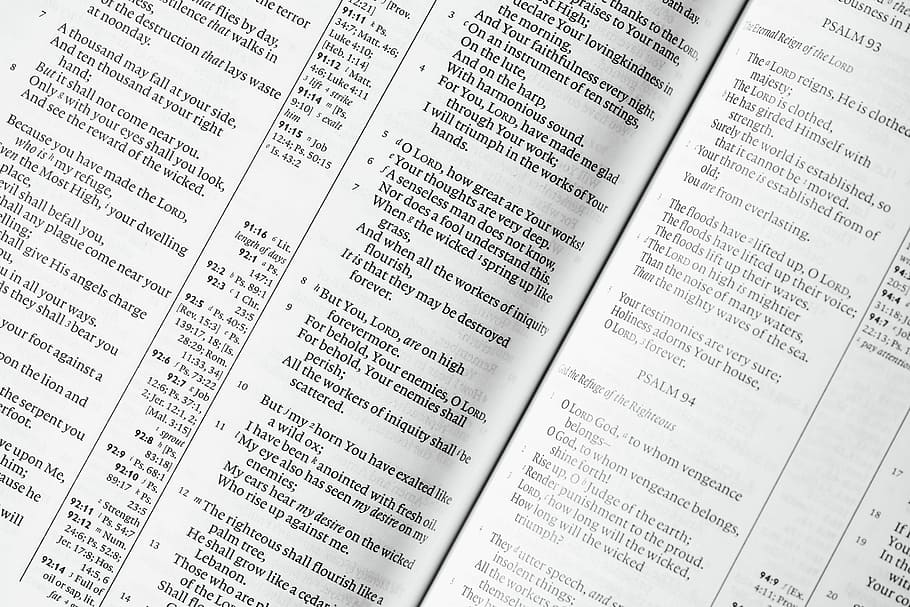 the terror
that flies by day,
pestilence that walks in
of the destruction that lays waste
at noonday.
7 A thousand may fall at your side,
And ten thousand at your right
hand;
But it shall not come near you.
8 Only g with your eyes shall you look,
And see the reward of the wicked.
Because you have made the LORD,
who is h my refuge,
Even the Most High, i your dwelling
place,
evil shall befall you,
shall any plague come near your
dwelling;
shall give His angels charge
you,
you in all your ways.
hands they shall 3 bear you
your foot against a
upon the lion and
the serpent you
underfoot.
love upon Me,
him;
because he
will
[Prov.
91:11 k Ps.
34:7; Matt. 4:6;
Luke 4:10;
[Heb. 1:14]
91:12 l Matt.
4:6; Luke 4:11
3 lift 4 strike
91:14 m [Ps.
9:10] 5 exalt
him
91:15 n Job
12:4; Ps. 50:15
o Is. 43:2
91:16 6 Lit.
length of days
92:1 a Ps.
147:1
92:2 b Ps. 89:1
92:3 c 1 Chr.
23:5
92:5 d Ps. 40:5;
[Rev. 15:3] e Ps.
139:17, 18; [Is.
28:29; Rom.
11:33, 34]
92:6 f Ps. 73:22
92:7 g Job
12:6; Ps. 37:1,
2; Jer. 12:1, 2;
[Mal. 3:15]
1 sprout
92:8 h [Ps.
83:18]
92:9 i Ps. 68:1
92:10 j Ps.
89:17 k Ps.
23:5
2 Strength
92:11 l Ps. 54:7
92:12 m Num.
24:6; Ps. 52:8;
Jer. 17:8; Hos.
14:5, 6
92:14 3 Full of
oil or sap, lit.
fat 4
Sabbath day.
thanks to the LORD,
praises to Your name,
Most High;
declare Your lovingkindness in
the morning,
And Your faithfulness every night,
3 c On an instrument of ten strings,
On the lute,
And on the harp,
With harmonious sound.
4 For You, LORD, have made me glad
through Your work;
I will triumph in the works of Your
hands.
5 d O LORD, how great are Your works!
e Your thoughts are very deep.
6 f A senseless man does not know,
Nor does a fool understand this.
7 When g the wicked 1 spring up like
grass,
And when all the workers of iniquity
flourish,
It is that they may be destroyed
forever.
8 h But You, LORD, are on high
forevermore.
9 For behold, Your enemies, O LORD,
For behold, Your enemies shall
perish;
All the workers of iniquity shall i be
scattered.
10 But j my 2 horn You have exalted like
a wild ox;
I have been k anointed with fresh oil.
11 l My eye also has seen my desire on my
enemies;
My ears hear my desire on the wicked
Who rise up against me.
12 m The righteous shall flourish like a
palm tree,
He shall grow like a cedar in
Lebanon.
13 Those who are
of the LORD
Shall flourish
14
PSALM 93
The Eternal Reign of the LORD
1 The a LORD reigns, He is clothed
majesty;
The LORD is clothed,
b He has girded Himself with
strength.
Surely the world is established, so
that it cannot be 1 moved.
2 c Your throne is established from of
old;
You are from everlasting.
3 The floods have 2 lifted up, O LORD,
The floods have lifted up their voice;
The floods lift up their waves.
4 d The LORD on high is mightier
Than the noise of many waters,
Than the mighty waves of the sea.
5 Your testimonies are very sure;
Holiness adorns Your house,
O LORD, 3 forever.
PSALM 94
God the Refuge of the Righteous
1 O LORD God, a to whom vengeance
belongs—
O God, to whom vengeance belongs,
shine forth!
2 Rise up, O b Judge of the earth;
Render punishment to the proud.
3 LORD, c how long will the wicked,
How long will the wicked
triumph?
4 They d utter speech,
insolent things;
All the workers
5 They
94:4
94:7
pay attention
94:9 f [Ex.
4:11; Pr
17
18 If I
19 In th
with
Your co
20